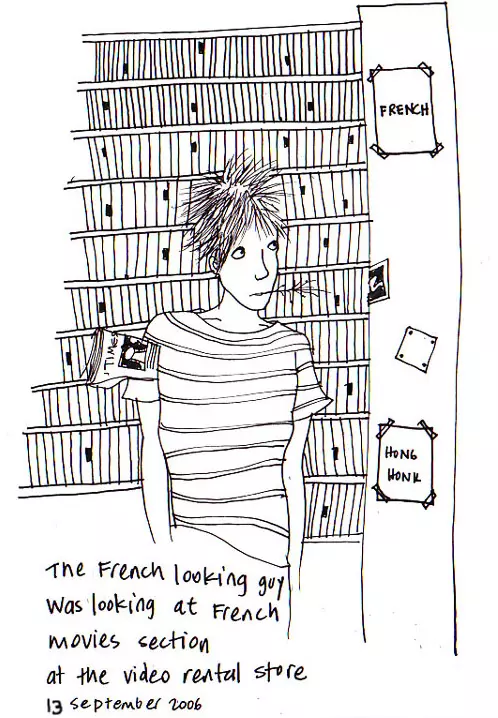 FRENCH
TIMES
HONG
HONK
The French looking guy
Was looking at French
movies section
at the video rental store
13 September 2006